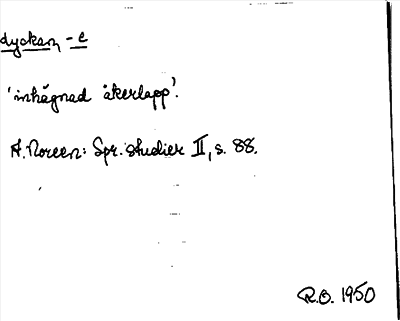 lyckan, -e
'inhägnad åkerlapp'.
A. Noreen: Spr. studier II, s. 88.
R.O. 1950